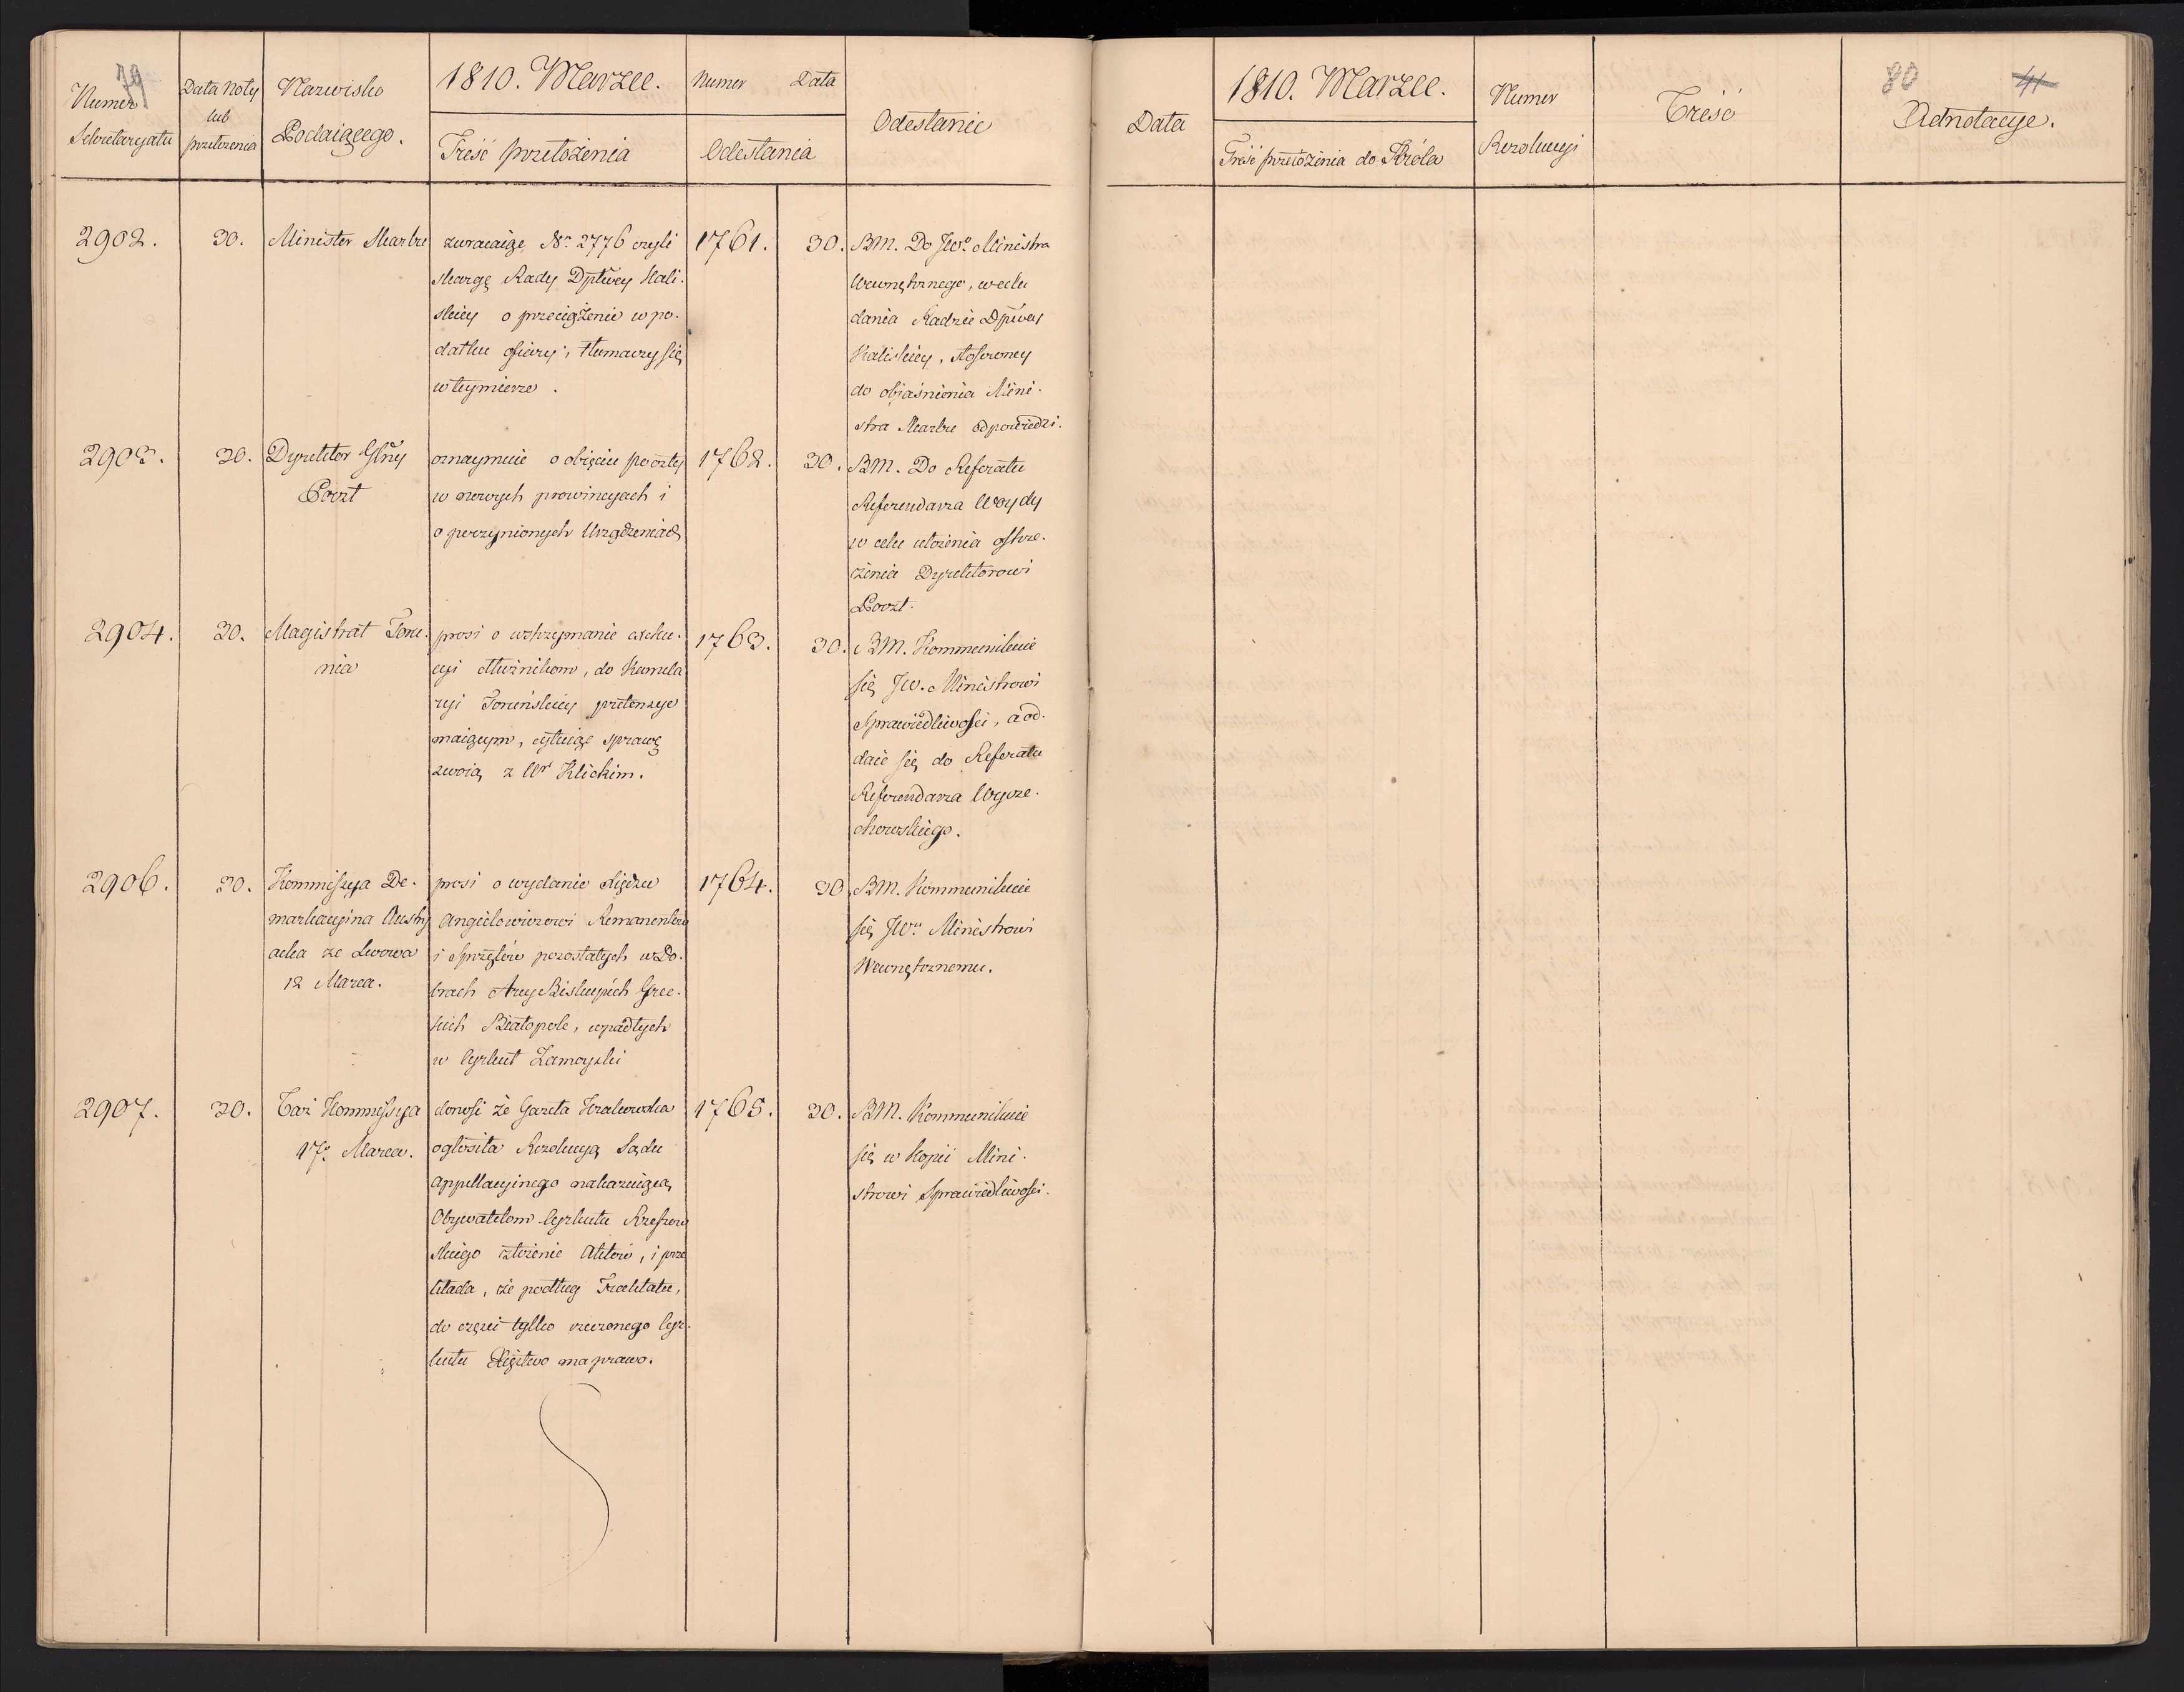 79
Numer
Sekretaryatu
Data Noty
lub
przełożenia
Nazwisko
Podaiącego.
1810. Marzec.
Treść przełożenia
Numer Data
Odesłania
Odesłanie
2902. 30. Minister Skarbu
zwracaiąc Nr. 2776 czyli
skargę Rady Dptwey Kali-
skiey o przeciążenie w po-
datku ofiary, tłumaczy się
w teymierze.
1761. 30.
BM. Do JWo. Ministra
Wewnętrznego, w celu
dania Radzie Dptwey
Kaliskiey, stosowney
do obiaśnienia Mini-
stra Skarbu odpowiedzi.
2903. 30. Dyrektor Głny
Poczt
oznaymuie o obięciu poczty
w nowych prowincyach i
o poczynionych Urządzeniach
1762. 30.
BM. Do Referatu
Referendarza Woydy
w celu ułożenia ostrze-
żenia Dyrektorowi
Poczt.
2904. 30. Magistrat Toru-
nia
prosi o wstrzymanie exeku-
cyi dłużnikom, do Kamela
ryi Toruńskiey pretensye
maiącym, cytuiąc sprawę
swoią z Ur Klickim.
1763. 30.
BM. Kommunikuie
się JW. Ministrowi
Sprawiedliwości, a od-
daie się do Referatu
Referendarza Wycze-
chowskiego.
2906. 30. Kommissya De-
markacyina Austry
acka ze Lwowa
12 Marca.
prosi o wydanie Xiędzu
Angielowiczowi Remanentów
i sprzętów pozostałych w Do-
brach Arcy Biskupich Grec-
kich Białopole, upadłych
w Cyrkuł Zamoyski
1764. 30.
BM. Kommunikuie
się JWu. Ministrowi
Wewnętrznemu.
2907. 30. Taż Kommissya
17o. Marca.
donosi że Gazeta Krakowska
ogłosiła Rezolucyą Sądu
Appellacyinego nakazuiącą
Obywatelom Cyrkułu Rzeszow
skiego złożenie Aktów, i prze
kłada, że podług Traktatu,
do części tylko rzeczonego Cyr-
kułu Xięstwo ma prawo.
1765. 30.
BM. Kommunikuie
się w Kopii Mini-
strowi Sprawiedliwości.
80 41
Data
1810. Marzec.
Treść przełożenia do Króla
Numer
Rezolucyi
Treść
Adnotacye.